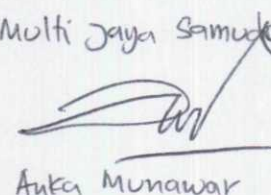 Multi Jaya Samud
Anka Munawar